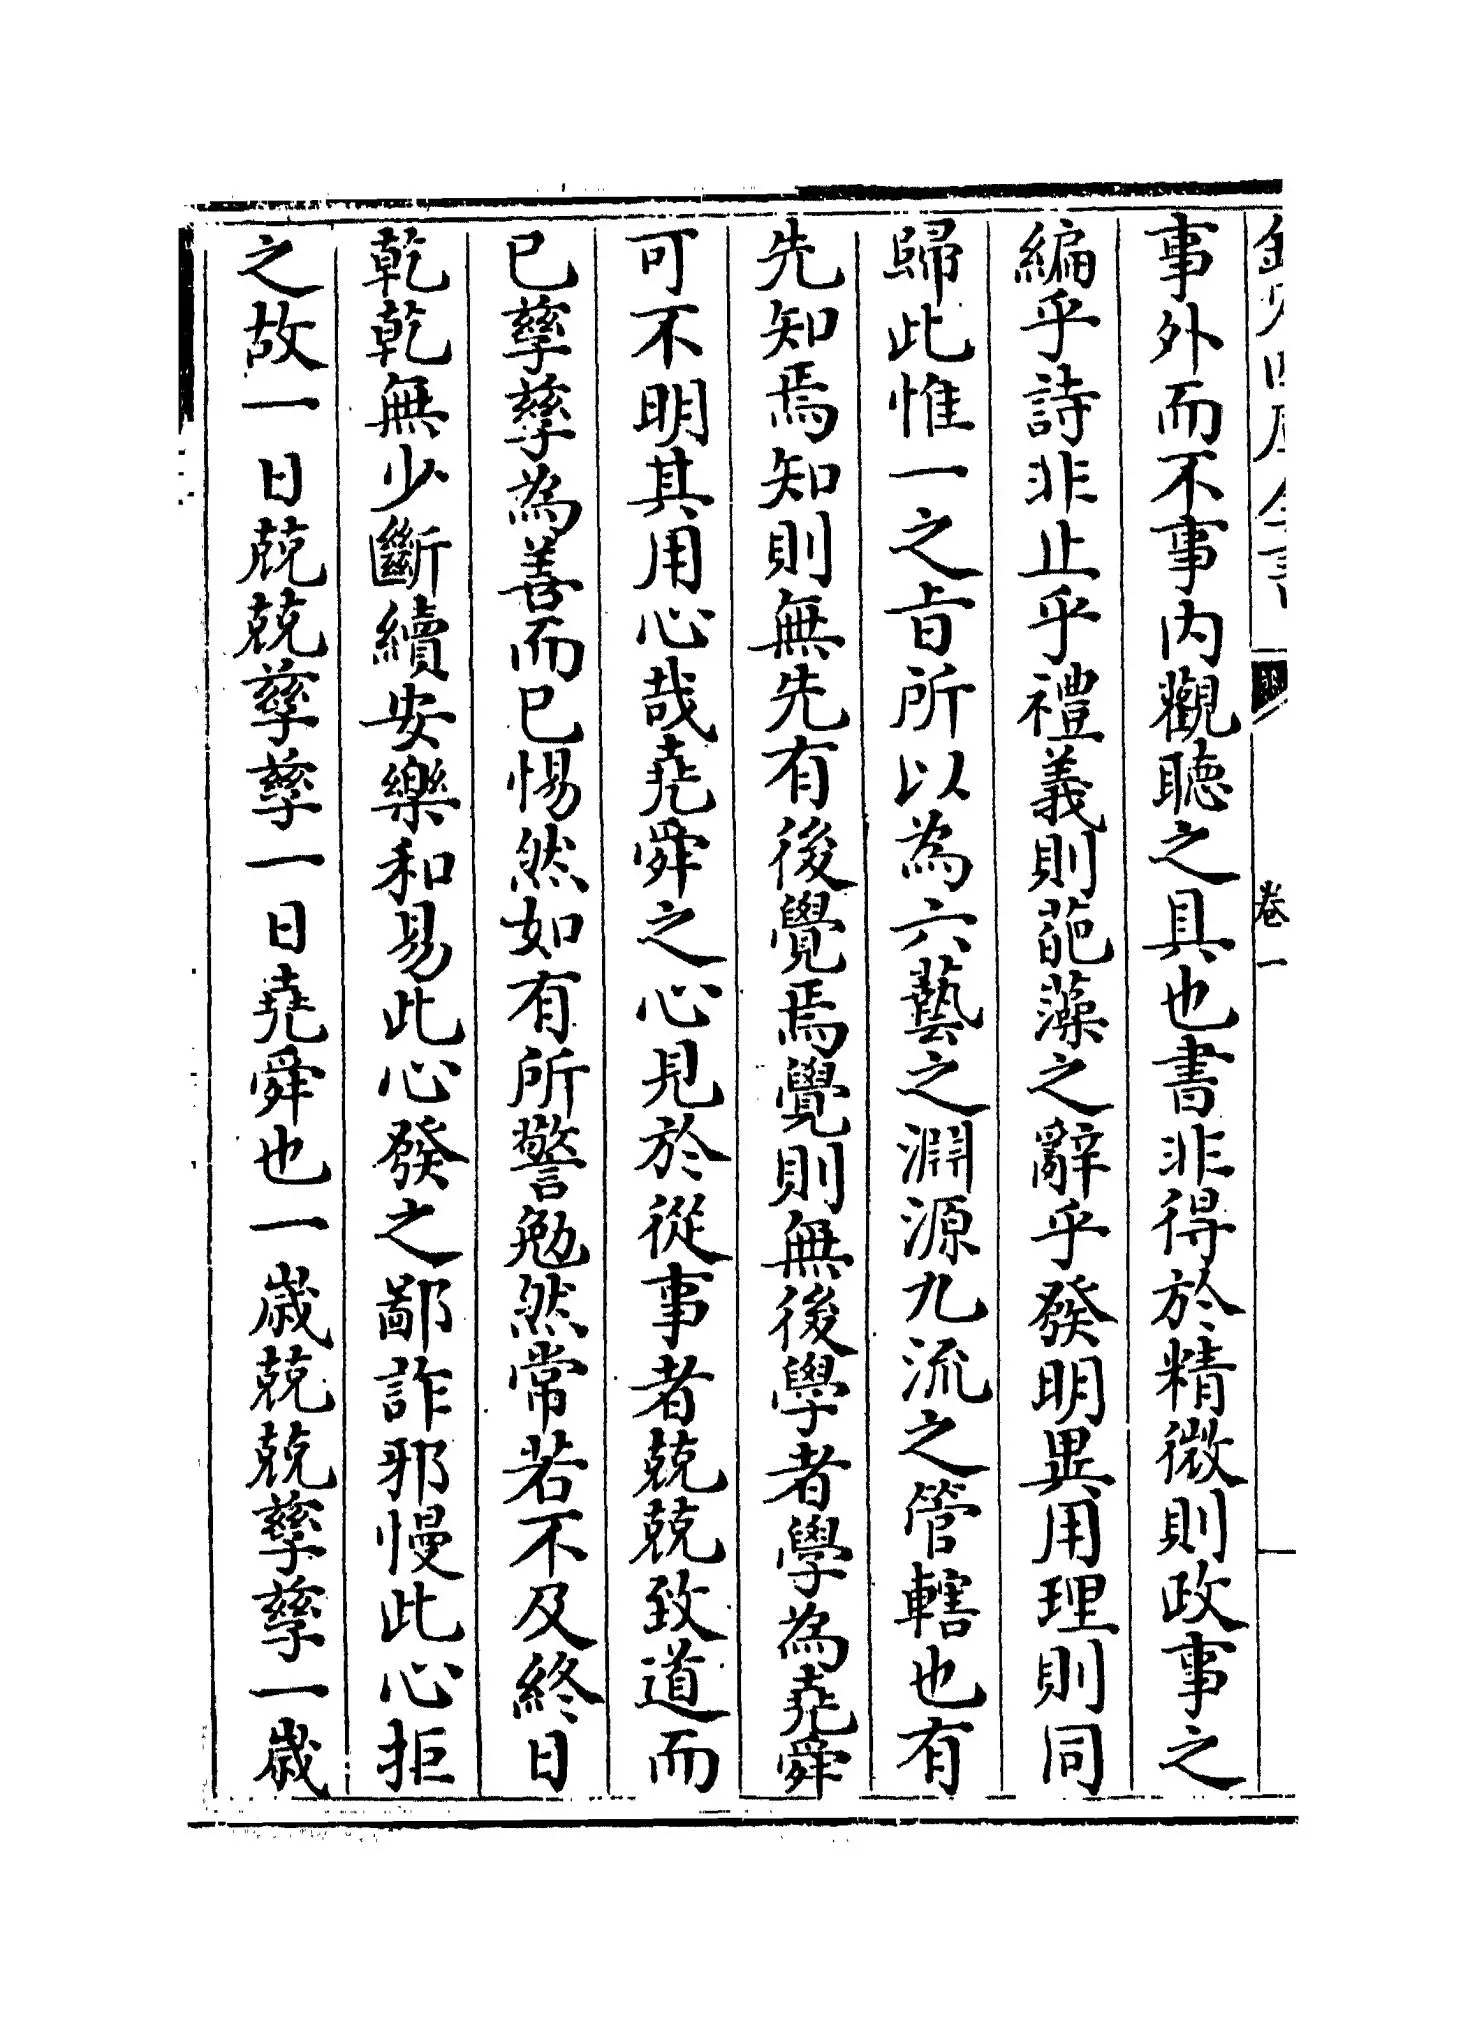 卷一
事外而不事内觀聽之具也書非得於精微則政事之
編乎詩非止乎禮義則葩藻之辭乎發明異用理則同
歸此惟一之㫖所以為六藝之淵源九流之管轄也有
先知焉知則無先有後覺焉覺則無後學者學為堯舜
可不明其用心哉堯舜之心見於從事者兢兢致道而
已孳孳為善而已惕然如有所警勉然常若不及終日
乾乾無少斷續安樂和易此心發之鄙詐邪慢此心拒
之故一日兢兢孳孳一日堯舜也一歲兢兢孳孳一歲